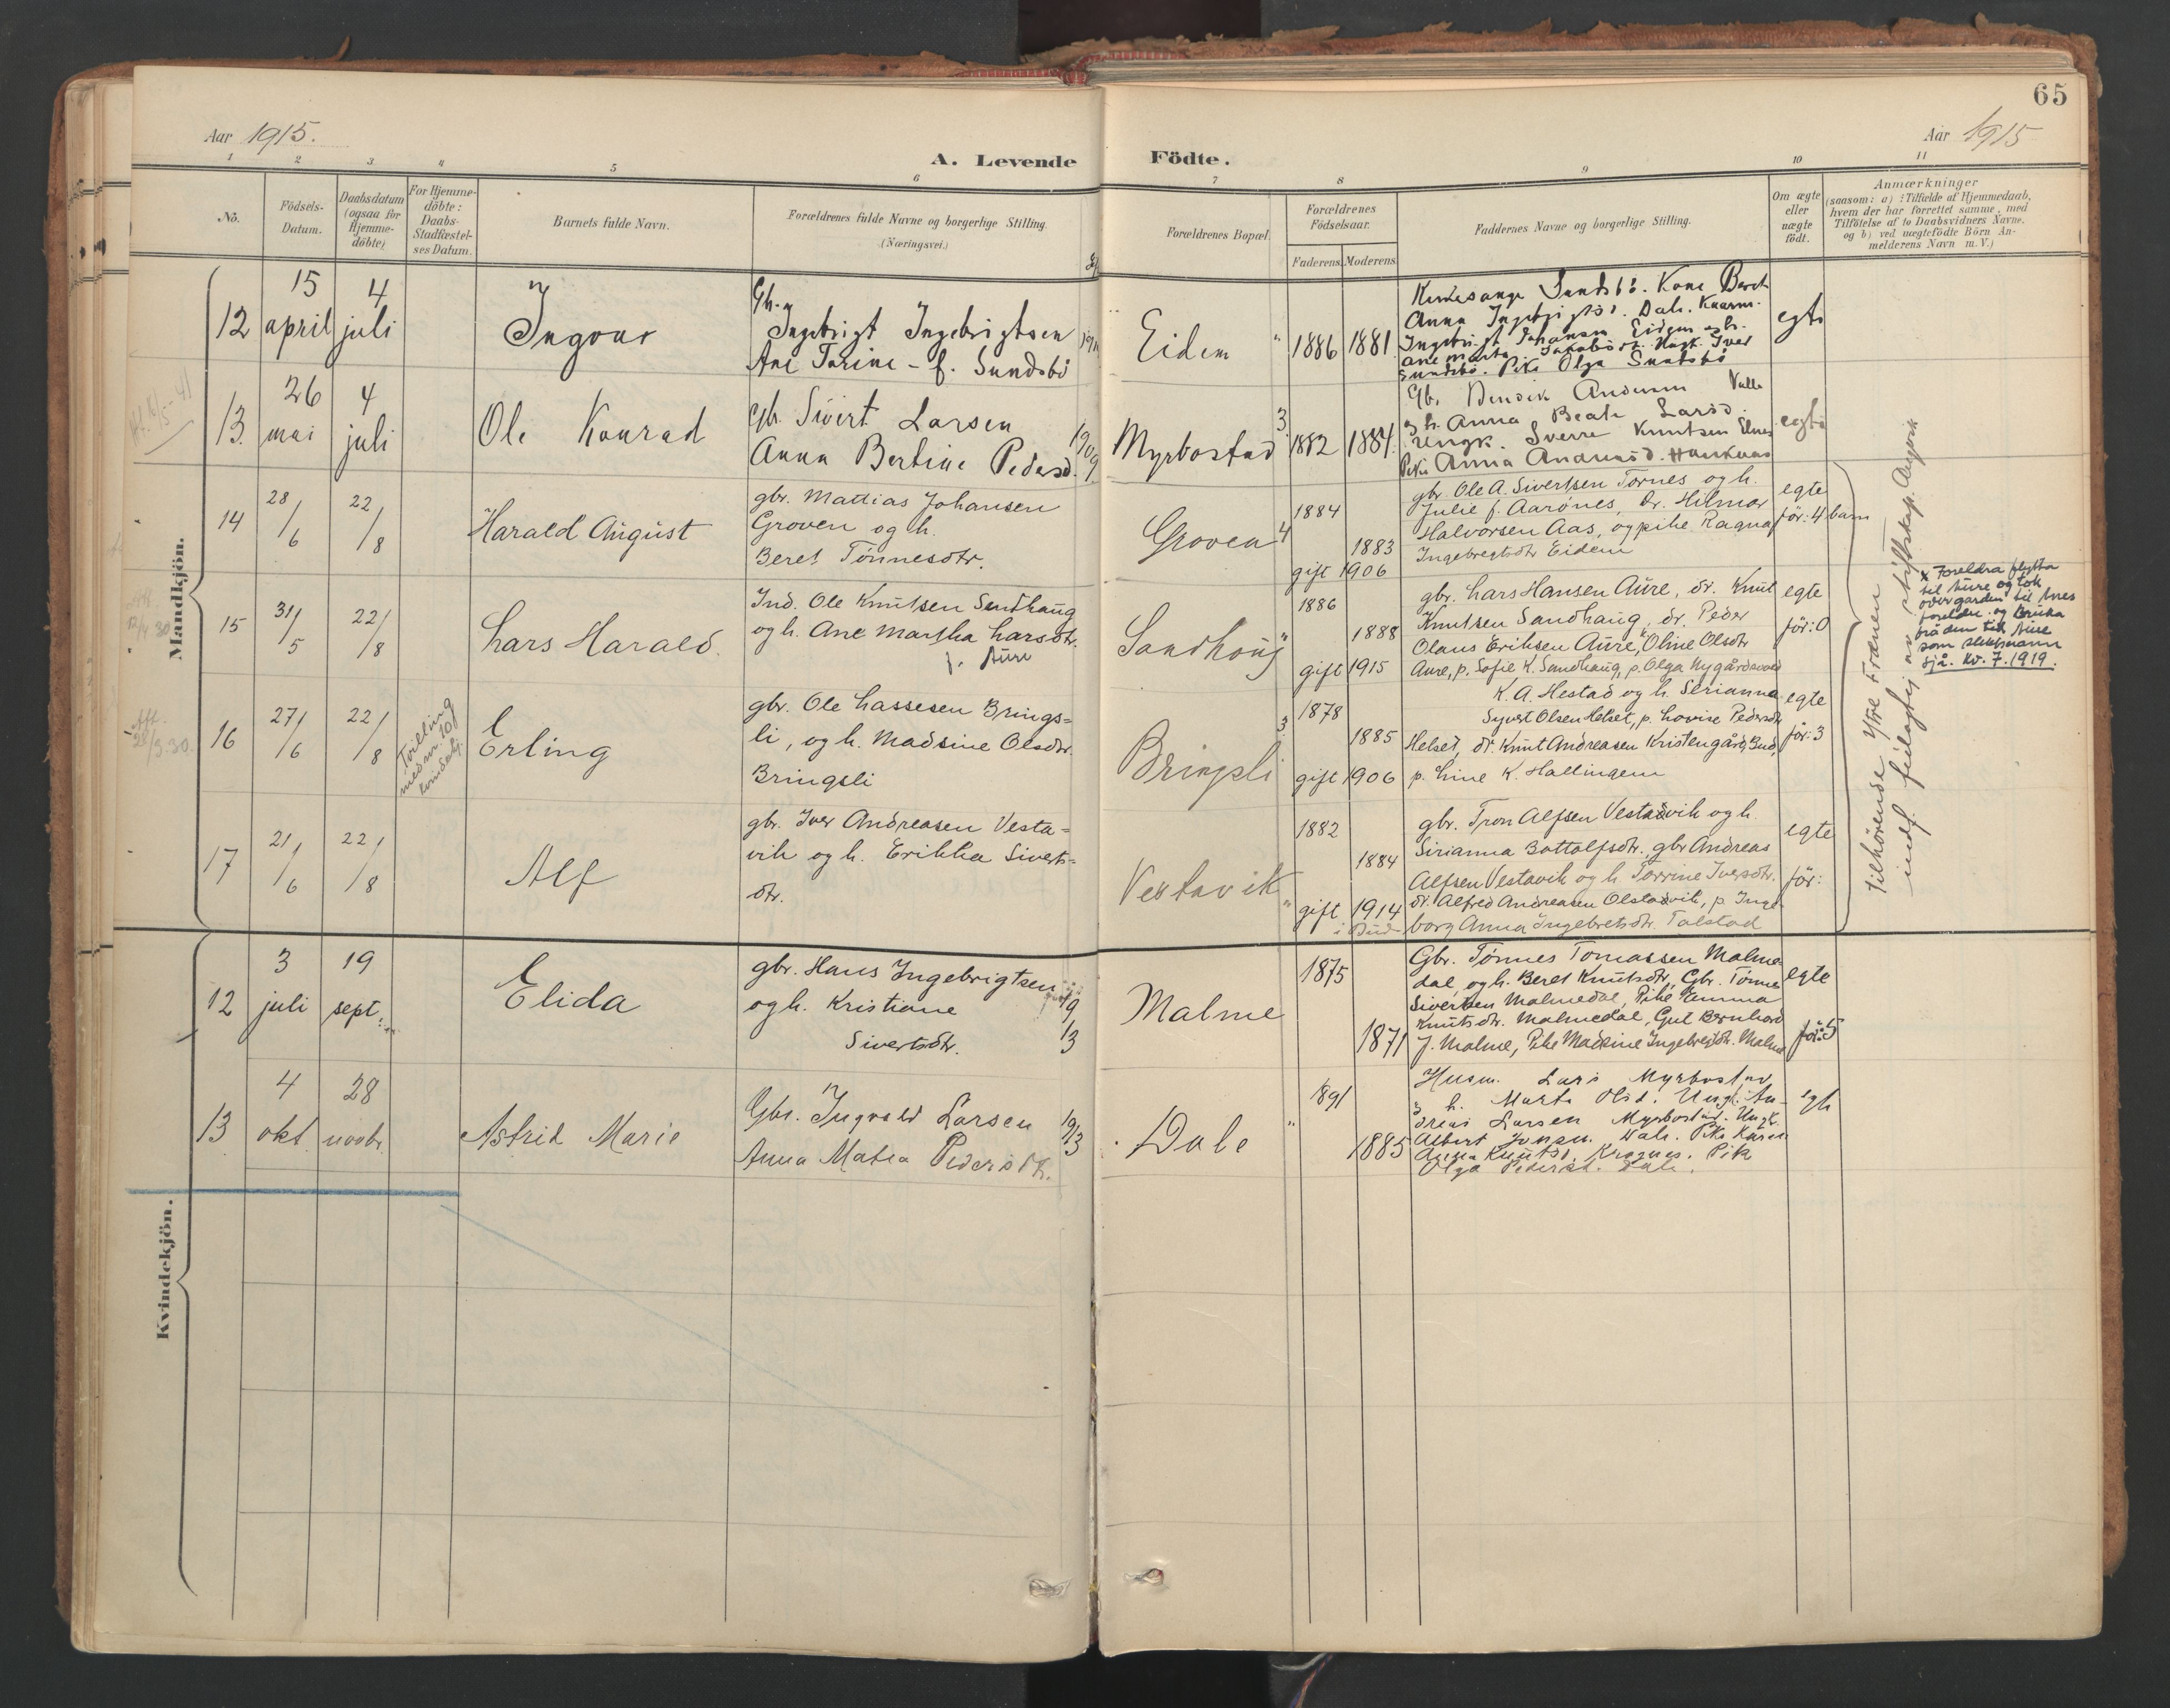 65
Aar 1915.
Aar 1915
A. Levende Födte.
1 2 3 4 5 6 7 8 9 10 11
No.
Födsels-
Datum.
Daabsdatum
(ogsaa for
Hjemme-
döbte)
For Hjemme-
döbte:
Daabs-
Stadfæstel-
ses Datum.
Barnets fulde Navn.
Forældrenes fulde Navne og borgerlige Stilling
(Næringsvei.)
Forældrenes Bopæl.
Forældrenes
Födselsaar.
Faderens. Moderens.
Faddernes Navne og borgerlige Stilling.
Om ægte
eller
uægte
födt.
Anmærkninger
(saasom: a) i Tilfælde af Hjemmedaab,
hvem der har forrettet samme, med
Tilföielse af to Daabsvidners Navne.
og b) ved uægtefödte Börn An-
melderens Navn m. V.)
Mandkjön.
12
15
april
4
juli
Ingvar
Gb.
Ingebrigt Ingebrigtsen
Ane Tarine - f. Sundsbö
Eidem
1886 1881
Kirkesanger Sundsbö. Kone Berit
Anna Ingebrigtsd. Dale.
Ingebrigt Johansen Eidem og h.
Ane Marta Jakobsd. Ungk. Iver
Sundsbö. Pike Olga Sundsbö
egte
13.
26
mai
4
juli
Ole Konrad
Gb. Sivert Larsen
Anna Bertine Pedersd.
1909
Myrbostad
3
1882 1884.
Gb. Bendik Andersen Valle
og h. Anna Beate Larsd.
Ungk. Sverre Knutsen Elnes
Pike Anna Andreasd. Haukaas
egte
14
28/6
22/8
Harald August
gbr. Mattias Johansen
Groven og h.
Beret Tönnesdtr.
Groven
4
1884
1883
gift 1906
gbr. Ole A. Sivertsen Tornes og h.
Julie f. Aarönes, dr. Hilmar
Halvorsen Aas, og pike Ragna
Ingebregtsdtr Eidem
egte
för: 4 barn
15
31/5
22/8
Lars Harald.
Ind. Ole Knutsen Sandhaug
og h. Ane Martha Larsdtr.
f. Aure
Sandhoug
1886
1888
gift 1915
gbr. Lars Hansen Aure, dr. Knut
Knutsen Sandhaug, dr. Peder
Olaus Eriksen Aure, Oline Olsdtr
Aure, p. Sofie K. Sandhaug, p. Olga Nygårdsvold
egte
för: 0
x Foreldra flytta
til Aure og tok
over garden til hnes
foreldr. og bruka
frå den tid Aure
som slektsnamn
sjå. kv. 7. 1919.
16
27/6
22/8
Tvilling
med nr. 10
kvindekj.
Erling
gbr. Ole Lassesen Brings=
li, og h. Madsine Olsdtr.
Bringsli
Bringsli
3
1878
1885
gift 1906
K. A. Hestad og h. Serianna
Syvert Olsen Helset, p. Lovise Pedersdtr
Helset, dr. Knut Andreasen Kristengård, Bud,
p. Line K. Hallingem
egte
för: 3
17
21/6
22/8
Alf
gbr. Iver Andreasen Vesta=
vik og h. Erikka Siverts=
dtr.
Vestavik
1882
1884
gift 1914
i Bud
gbr. Tron Alfsen Vestavik og h.
Sirianna Bottolfsdtr, gbr Andreas
Alfsen Vestavik og h. Torrine Iversdtr.
dr. Alfred Andreasen Olstadvik, p. Inge-
borg Anna Ingebretsdtr. Talstad
egte
för:
tilhörende Ytre Frænen
Kvindekjön.
12
3
juli
19
sept.
Elida
gbr. Hans Ingebrigtsen
og h. Kristiane
Sivertsdtr.
19/13
Malme
1875
1871
Gbr. Tönnes Tomassen Malme-
dal, og h. Beret Knutsdtr, Gbr. Tönnes
Sivertsen Malmedal, Pike Emma
Knutsdtr. Malmedal, Gut Bernhard
J. Malme, Pike Madsine Ingebrigtsdtr. Malme
egte
för: 5
13
4
okt
28
novbr.
Astrid Marie
Gbr. Ingvald Larsen
Anna Matea Pedersdtr.
19/13
Dale
1891
1885
Husm. Lars Myrbostad
og h. Marta Olsd. Ungk. An-
dreas Larsen Myrbostad. Ungk.
Albert Jonsen. Dale. Pike Karen
Anna Knutsd. Kragnes. Pike
Olga Pedersd. Dale.
egte